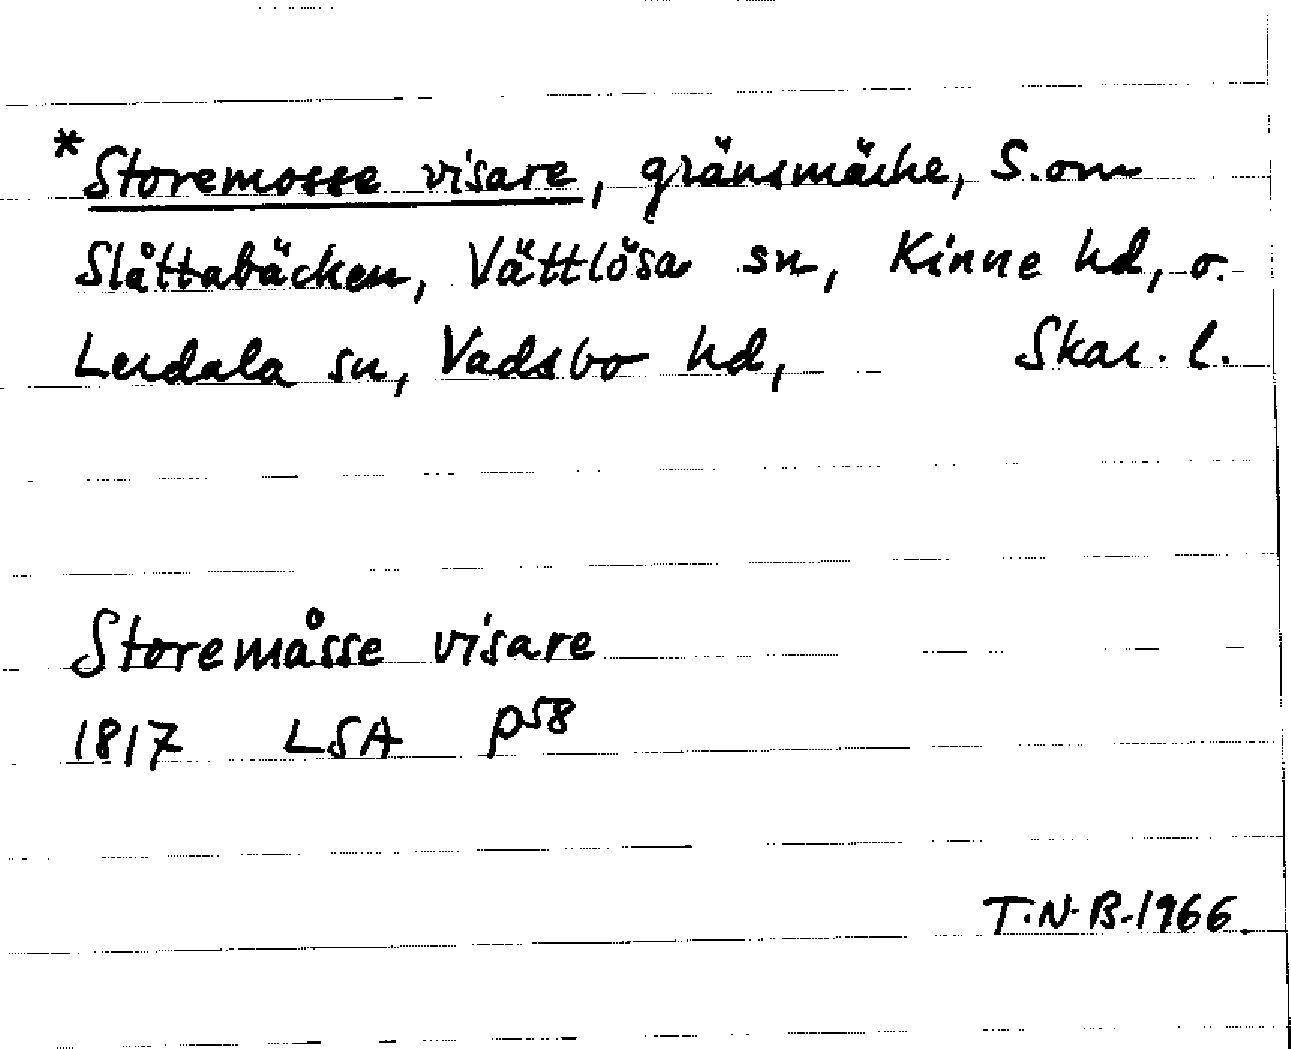 *Storemosse visare, gränsmärke, S.om
Slåttabäcken, Vättlösa sn, Kinne hd, o.
Lerdala sn, Vadsbo hd, Skar. l.
Storemåsse visare
1817 LSA P58
T.N.B. 1966.